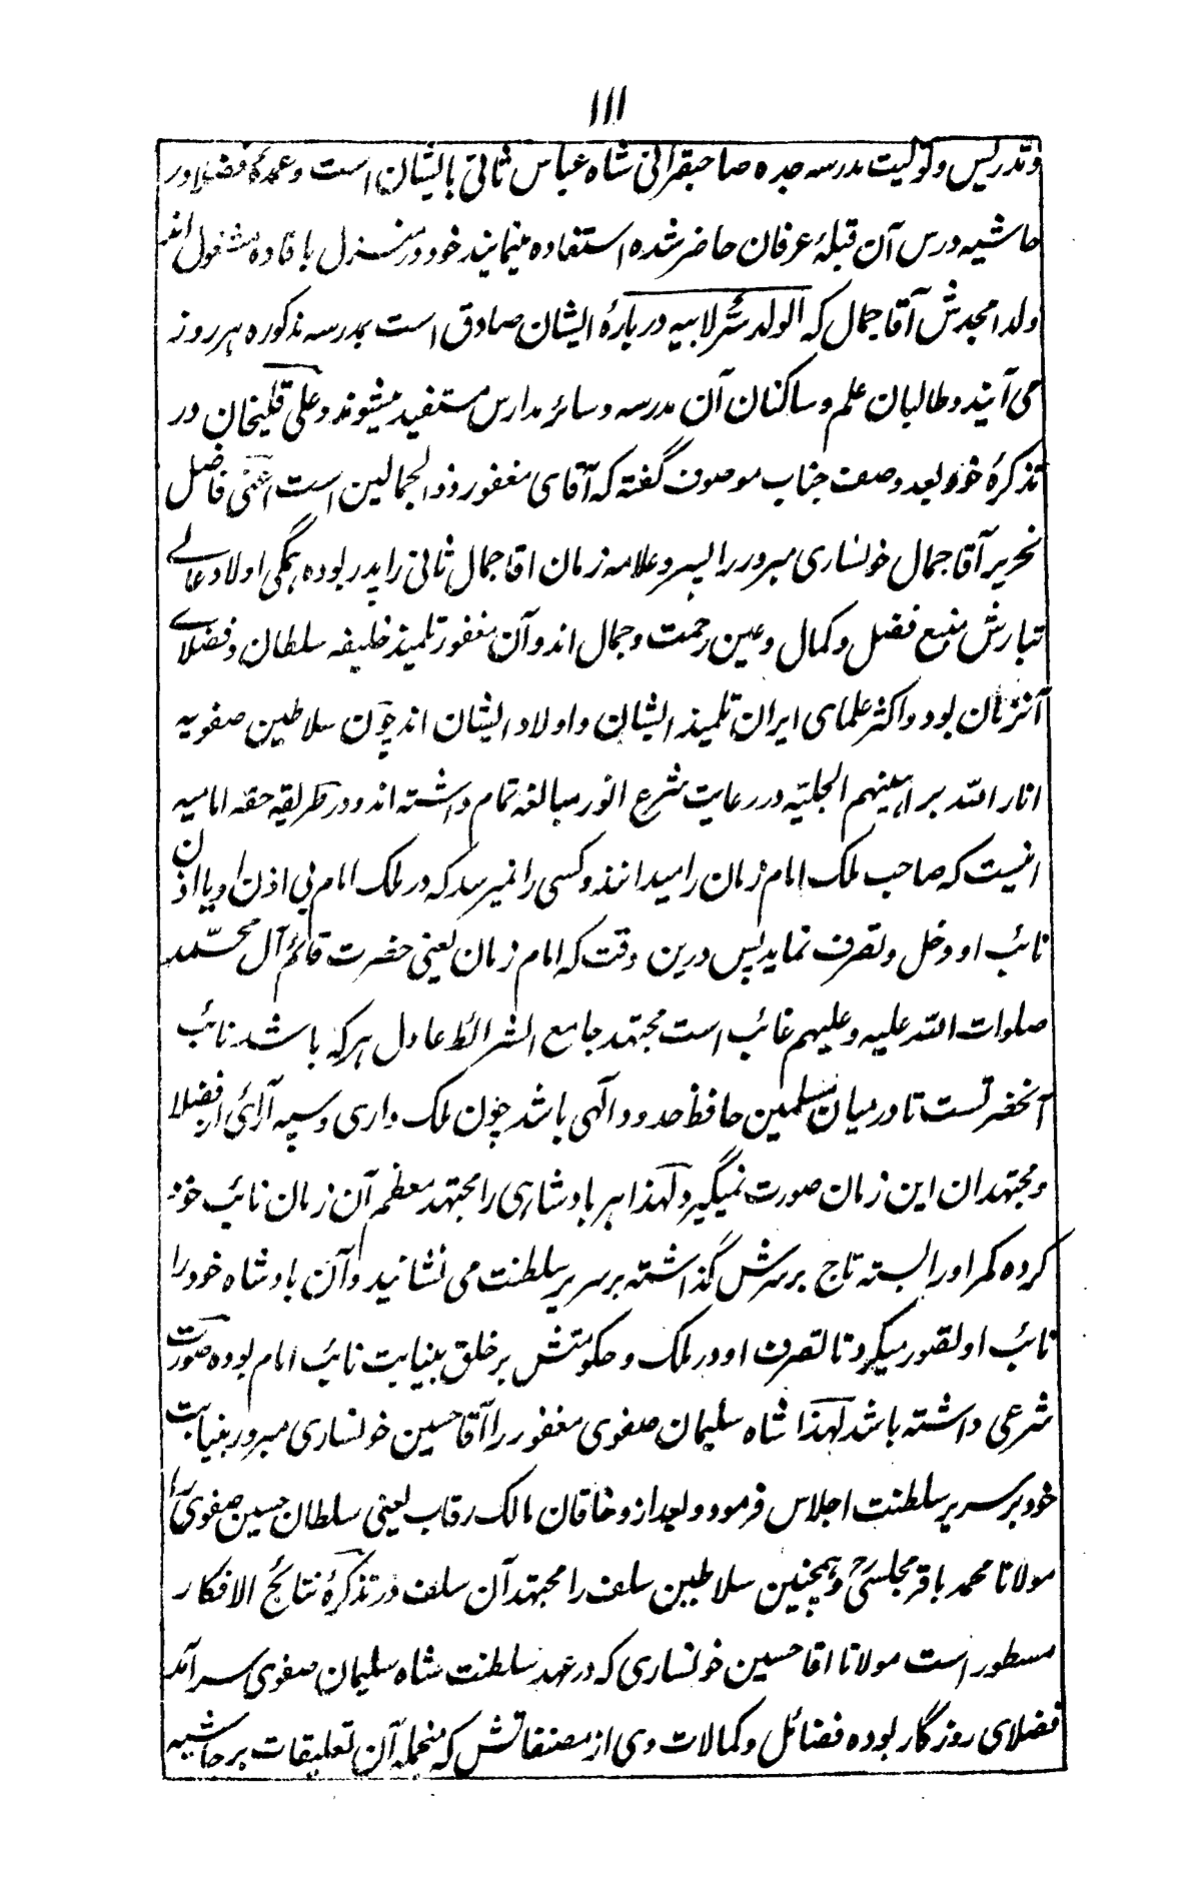 ۱۱۱
و تدریس و تولیت مدرسه جده صاحبقرانی شاه عباس ثانی بایشان است و عمده فضلا در
حاشیه درس آن قبلۂ عرفان حاضر شده استفاده مینمایند خود در منزل بافاده مشغول اند
ولد امجدش آقا جمال که الولد سر لابیه دربارۂ ایشان صادق است بمدرسه مذکوره هر روز
می آیند و طالبان علم و ساکنان آن مدرسه و سائر مدارس مستفید میشوند و علی قلیخان در
تذکرۂ خود بعد وصف جناب موصوف گفته که آقای مغفور ذوالجمالین است اعنی فاضل
نحریر آقا جمال خونساری مبرور را پسر و علامه زمان اقا جمال ثانی را پدر بوده همگی اولاد عالی
تبارش منبع فضل و کمال و عین رحمت و جمال اند و آن مغفور تلمیذ خلیفه سلطان و فضلای
آنزمان بود و اکثر علمای ایران تلمیذ ایشان و اولاد ایشان اند چون سلاطین صفویه
انار الله براهینهم الجلیّه در رعایت شرع انور مبالغه تمام داشته اند و در طریقه حقه امامیه
اینست که صاحب ملک امام زمان را میدانند و کسی را نمیرسد که در ملک امام بی اذن او یا اذن
نائب او دخل و تصرف نماید پس درین وقت که امام زمان یعنی حضرت قائم آل محمّد
صلوات الله علیه و علیهم غائب است مجتهد جامع الشرائط عادل هر که باشد نائب
آنحضرتست تا در میان مسلمین حافظ حدود الهی باشد چون ملک داری و سپه آرائی از فضلا
و مجتهدان این زمان صورت نمیگیرد لهذا هر بادشاهی را مجتهد معظم آن زمان نائب خود
کرده کمر او را بسته تاج بر سرش گذاشته بر سریر سلطنت می نشانید و آن بادشاه خود را
نائب او تصور میکرد تا تصرف او در ملک و حکومتش بر خلق بنیابت نائب امام بوده صورت
شرعی داشته باشد لهذا شاه سلیمان صفوی مغفور را آقا حسین خونساری مبرور بنیابت
خود بر سریر سلطنت اجلاس فرمود و بعد ازو خاقان مالک رقاب یعنی سلطان حسین صفوی را
مولانا محمد باقر مجلسیؒ و همچنین سلاطین سلف را مجتهد آن سلف در تذکرۂ نتائج الافکار
مسطور است مولانا اقا حسین خونساری که در عهد سلطنت شاه سلیمان صفوی سرآمد
فضلای روزگار بوده فضائل و کمالات وی از مصنفاتش که منجمله آن تعلیقات بر حاشیه